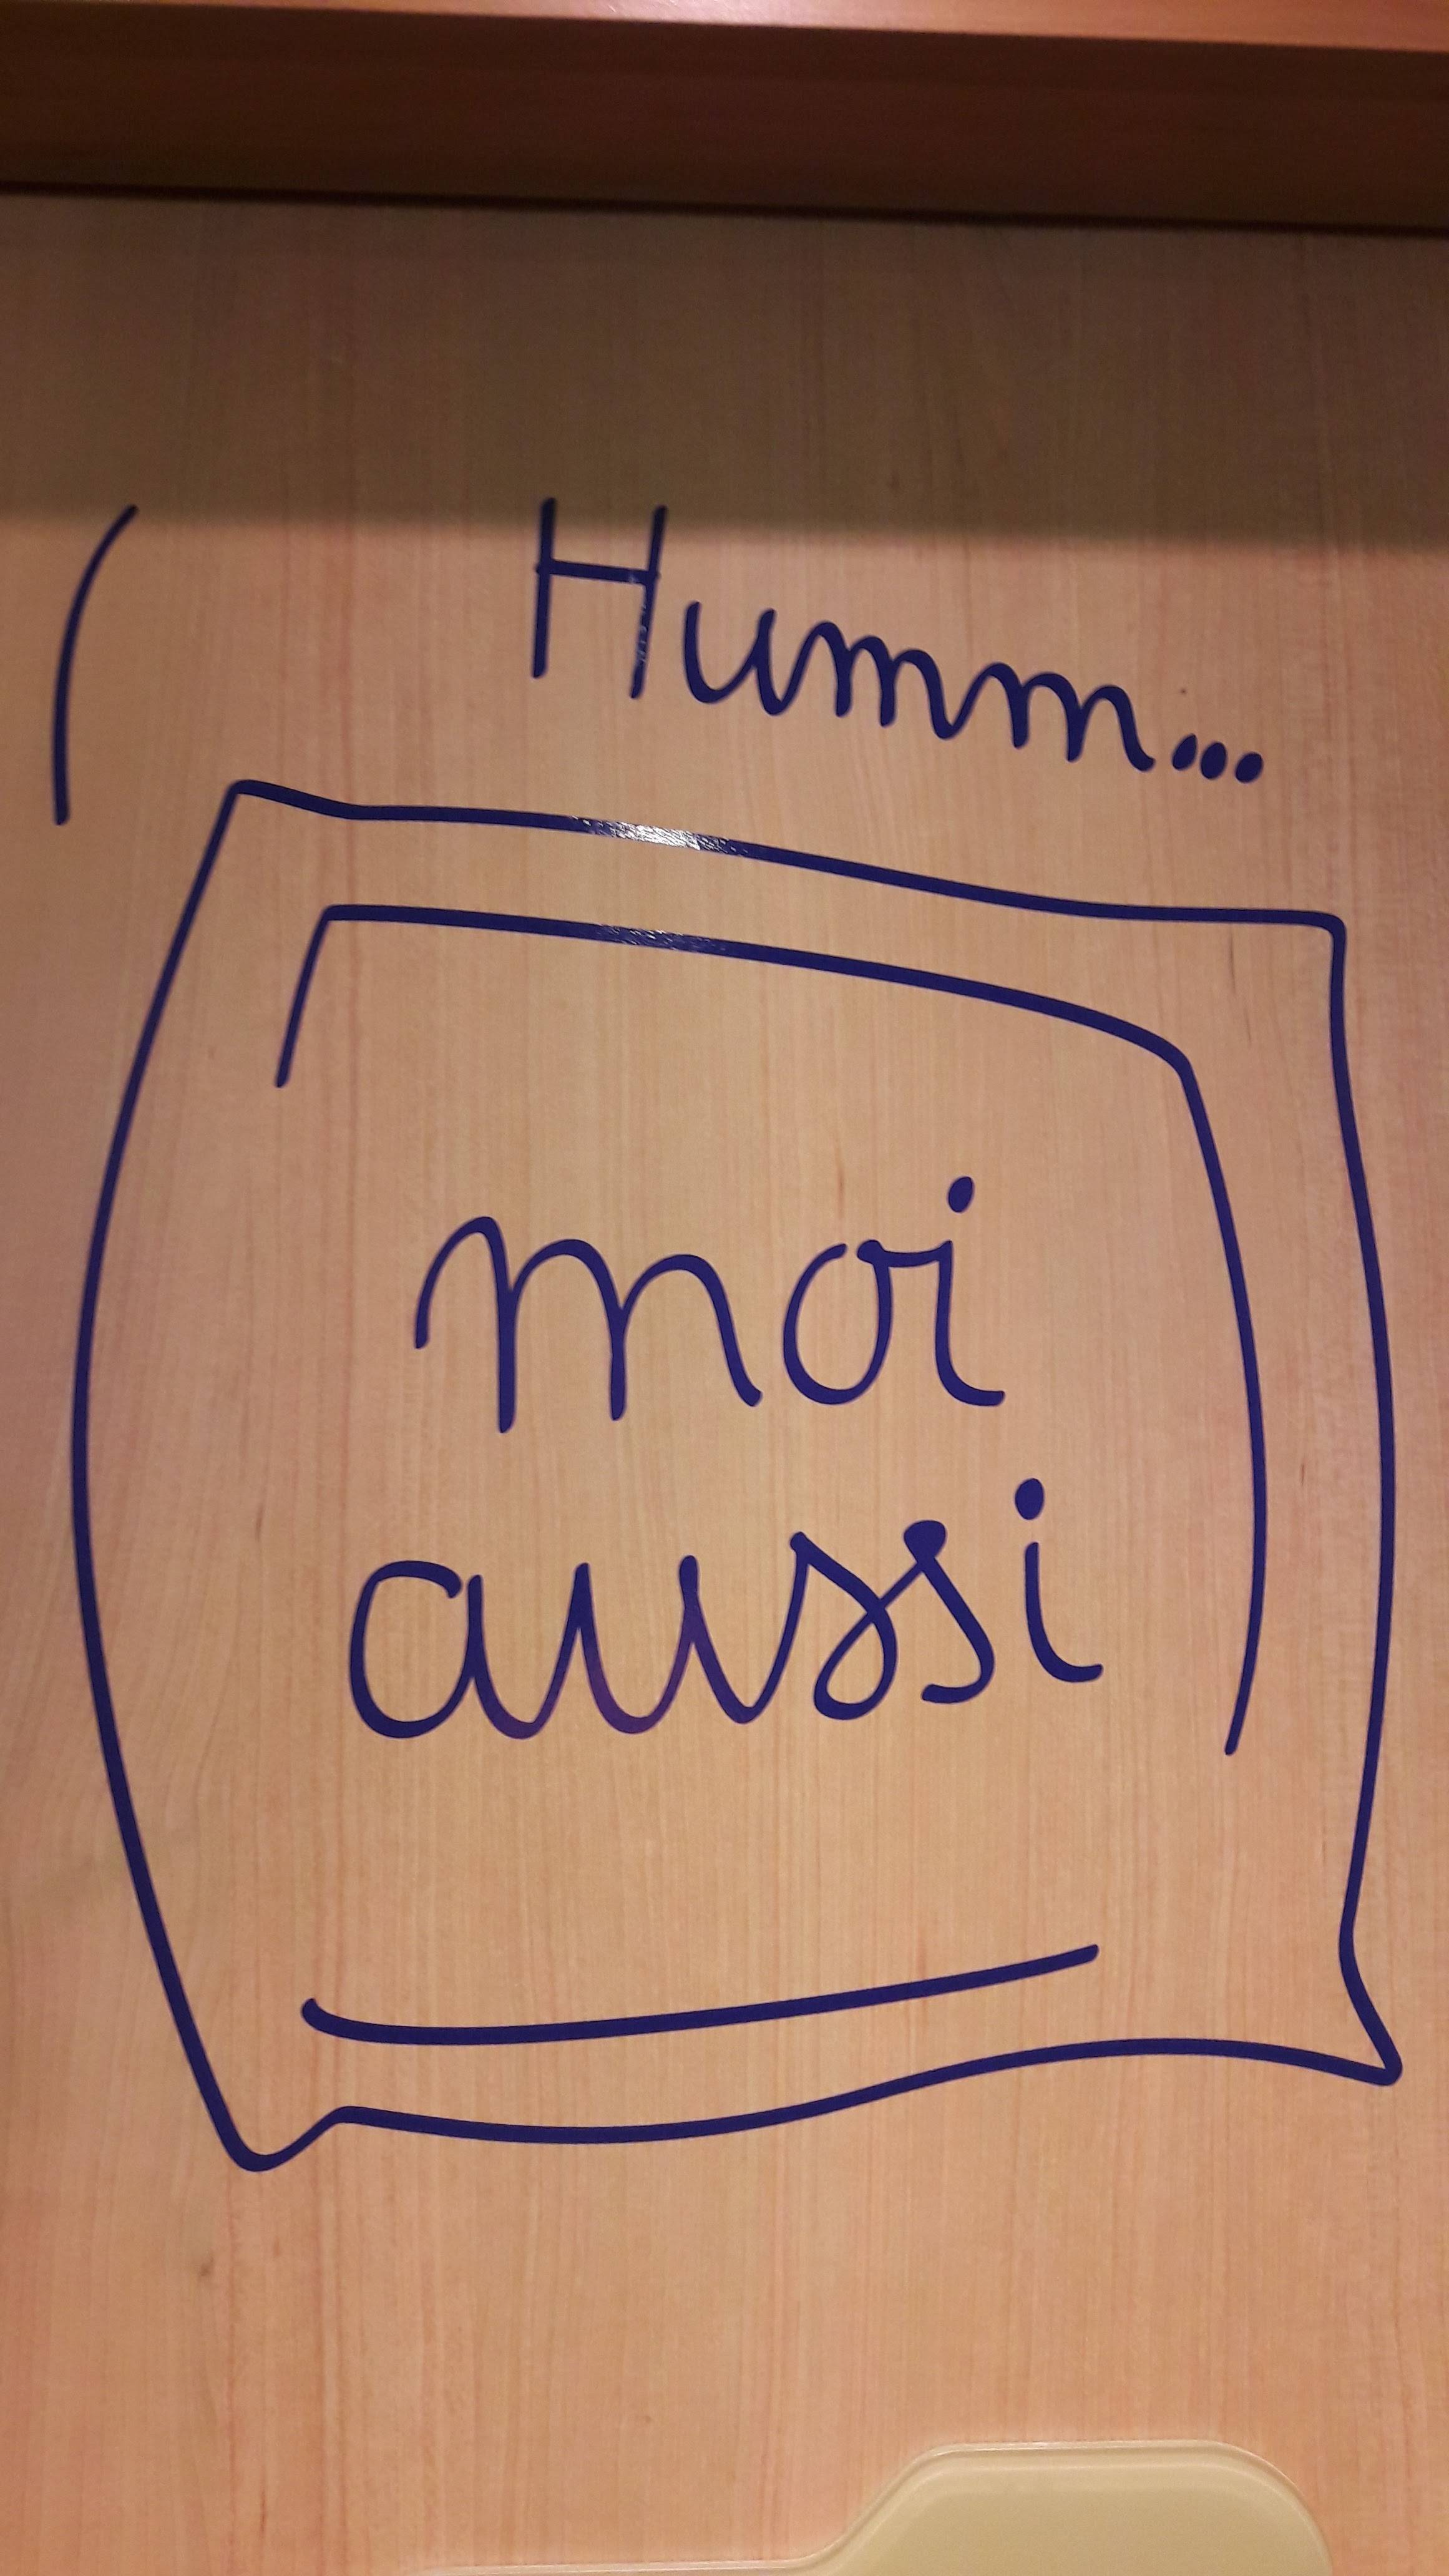 Humm...
moi
aussi